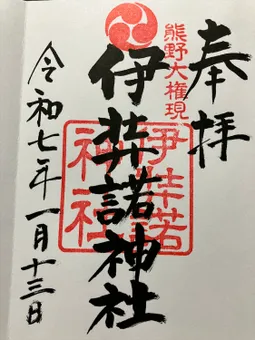 奉拝
熊野大権現
伊弉諾神社
伊弉诺
神社
令和七年一月十三日